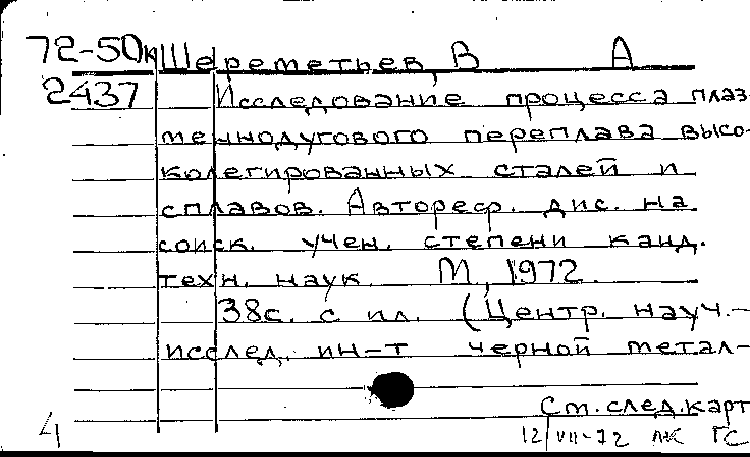 72-50к Шереметьев, В А
2437 Исследование процесса плаз-
меннодугового переплава высо-
колегированных сталей и
сплавов. Автореф. дис. на
соиск. учен. степени канд.
техн. наук. М, 1972.
38с. с ил. (Центр. науч.-
исслед. ин-т черной метал-
См. след. карт
4 12/VII-72 ЛК ГС